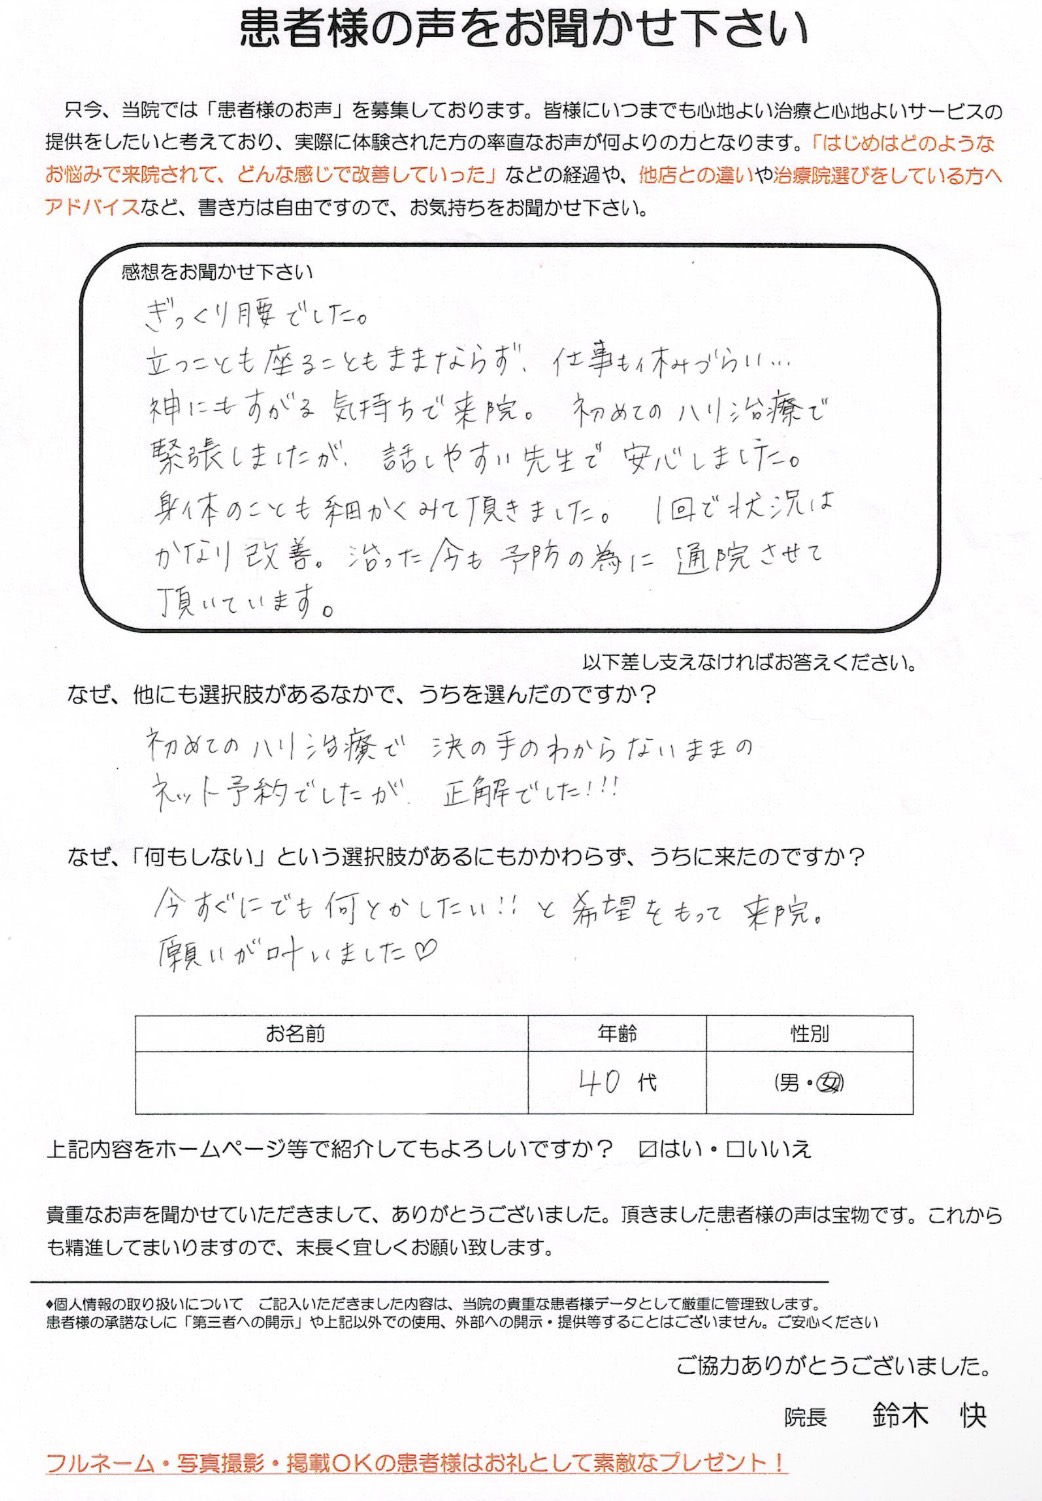 患者様の声をお聞かせ下さい
只今、当院では「患者様のお声」を募集しております。皆様にいつまでも心地よい治療と心地よいサービスの
提供をしたいと考えており、実際に体験された方の率直なお声が何よりの力となります。「はじめはどのような
お悩みで来院されて、どんな感じで改善していった」などの経過や、他店との違いや治療院選びをしている方へ
アドバイスなど、書き方は自由ですので、お気持ちをお聞かせ下さい。
感想をお聞かせ下さい
ぎっくり腰でした。
立つことも座ることもままならず、仕事も休みづらい…
神にもすがる気持ちで来院。初めてのハリ治療で
緊張しましたが、話しやすい先生で安心しました。
身体のことも細かくみて頂きました。1回で状況は
かなり改善。治った今も予防の為に通院させて
頂いています。
以下差し支えなければお答えください。
なぜ、他にも選択肢があるなかで、うちを選んだのですか？
初めてのハリ治療で決の手のわからないままの
ネット予約でしたが、正解でした!!!
なぜ、「何もしない」という選択肢があるにもかかわらず、うちに来たのですか？
今すぐにでも何とかしたい!!と希望をもって来院。
願いが叶いました♡
お名前 年齢 性別
40代 (男・女)
上記内容をホームページ等で紹介してもよろしいですか？ ☑はい・☐いいえ
貴重なお声を聞かせていただきまして、ありがとうございました。頂きました患者様の声は宝物です。これから
も精進してまいりますので、末長く宜しくお願い致します。
◆個人情報の取り扱いについて ご記入いただきました内容は、当院の貴重な患者様データとして厳重に管理致します。
患者様の承諾なしに「第三者への開示」や上記以外での使用、外部への開示・提供等することはございません。ご安心ください
ご協力ありがとうございました。
院長 鈴木 快
フルネーム・写真撮影・掲載OKの患者様はお礼として素敵なプレゼント！